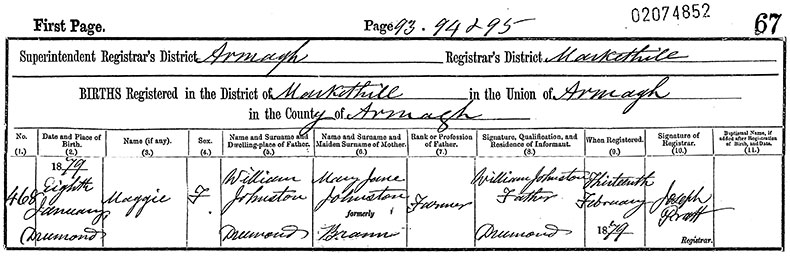 First Page. Page 93. 94 & 95 02074852 67
Superintendent Registrar's District Armagh Registrar's District Markethill
BIRTHS Registered in the District of Markethill in the Union of Armagh
in the County of Armagh
No. (1.) Date and Place of Birth. (2.) Name (if any). (3.) Sex. (4.) Name and Surname and Dwelling-place of Father. (5.) Name and Surname and Maiden Surname of Mother. (6.) Rank or Profession of Father. (7.) Signature, Qualification, and Residence of Informant. (8.) When Registered. (9.) Signature of Registrar. (10.) Baptismal Name, if added after Registration of Birth, and Date. (11.)
468 1879 Eighth January Drumond Maggie F William Johnston Drumond Mary Jane Johnston formerly Brann Farmer William Johnston Father Drumond Thirteenth February 1879 Joseph Pratt Registrar.